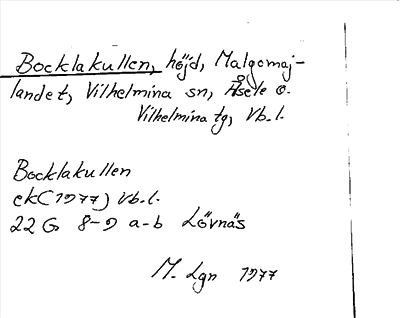 Bocklakullen, höjd, Malgomaj-
landet, Vilhelmina sn, Åsele o.
Vilhelmina tg, Vb. l.
Bocklakullen
ek(1977) Vb. l.
22 G 8-9 a-b Lövnäs
M. Lgn 1977